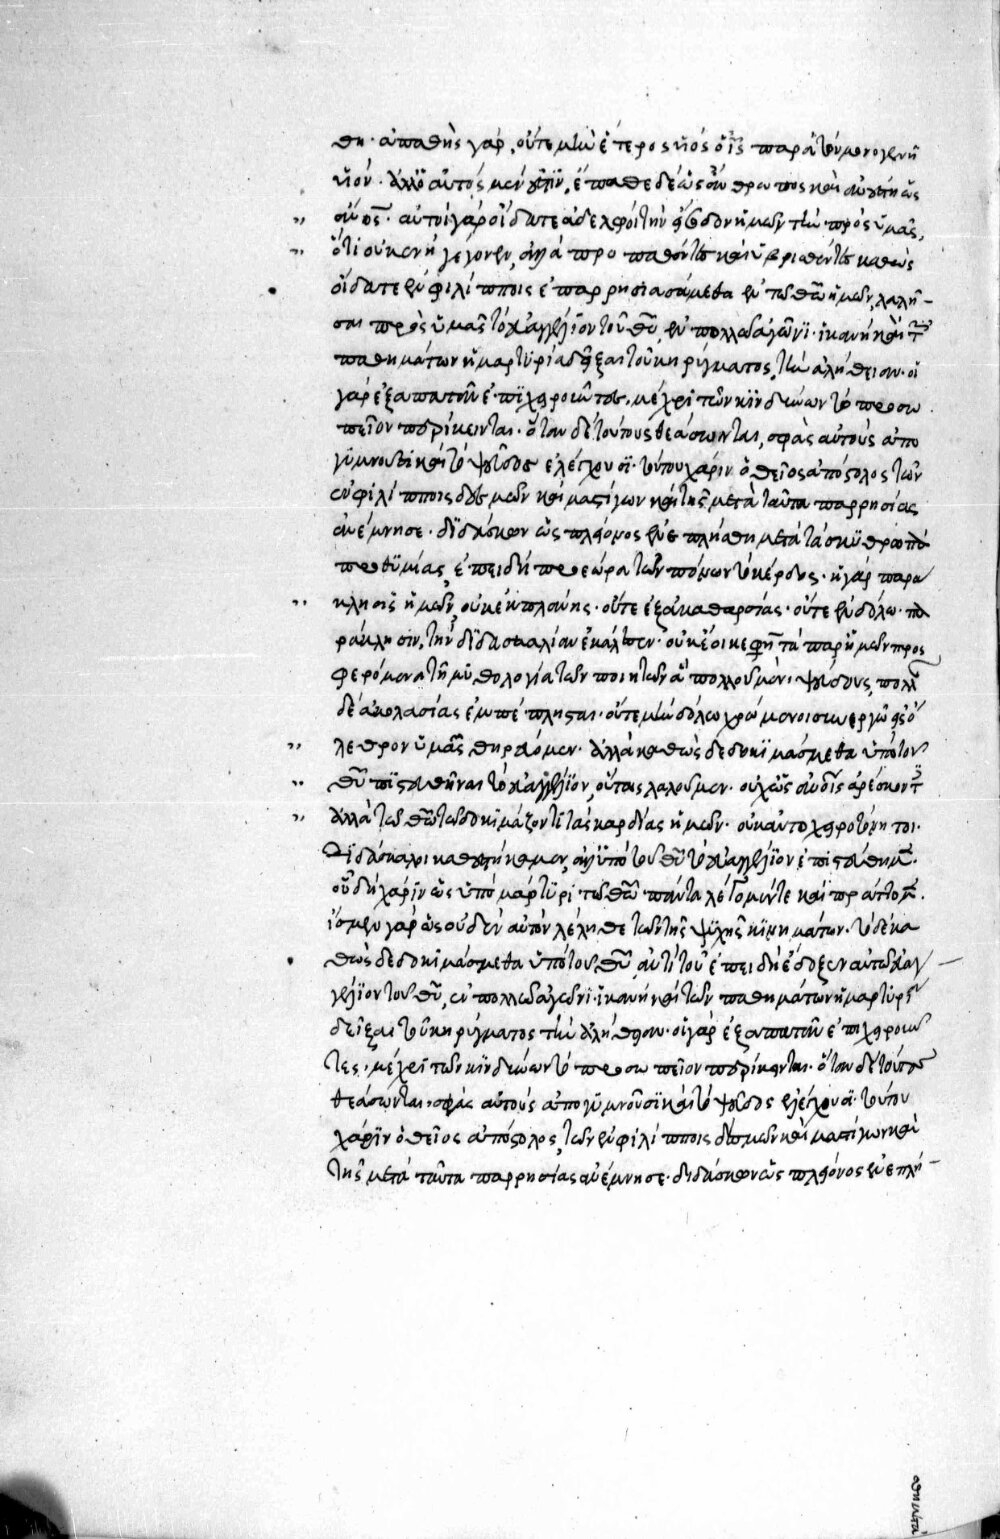 θη· ἀπαθὴς γάρ, οὔτε μὴν ἕτερος υἱὸς ὁ ἰς παρὰ τὸν μονογενῆ
υἱόν· ἀλλ' ὁ αὐτός μὲν ἐστιν, ἔπαθε δὲ ὡς ἄνθρωπος καὶ ἀνέστη ὡς
ἄνος· αὐτοὶ γὰρ οἴδατε ἀδελφοὶ τὴν εἴσοδον ἡμῶν τὴν πρὸς ὑμᾶς,
ὅτι οὐ κενὴ γέγονεν, ἀλλὰ προπαθόντες καὶ ὑβρισθέντες καθὼς
οἴδατε ἐν φιλίπποις ἐπαρρησιασάμεθα ἐν τῶ θῶ ἡμῶν, λαλῆ-
σαι πρὸς ὑμᾶς τὸ εὐαγγέλιον τοῦ θῦ, ἐν πολλῶ ἀγῶνι· ἱκανὴ καὶ τῶν
παθημάτων ἡ μαρτυρία δεῖξαι τοῦ κηρύγματος, τὴν ἀλήθειαν· οἱ
γὰρ ἐξαπατᾶν ἐπιχειροῦντες, μέχρι τῶν κινδύνων τὸ προσω
πεῖον περίκεινται· ὅταν δὲ τούτους θεάσωνται, σφὰς αὐτοὺς ἀπο
γυμνοῦσι καὶ τὸ ψεῦδος ἐλέγχουσι· τούτου χάριν ὁ θεῖος ἀπόστολος τῶν
ἐν φιλίπποις δεσμῶν καὶ μαστίγων καὶ τῆς μετὰ ταῦτα παρρησίας
ἀνέμνησε· διδάσκων ὡς πλείονος ἐνεπλήσθη μετὰ τὰ σκυθρωπὰ
προθυμίας, ἐπειδὴ προεώρα τῶν πόνων τὸ κέρδος· ἡ γὰρ παρά
κλησις ἡμῶν, οὐκ ἐκ πλάνης· οὔτε ἐξ ἀκαθαρσίας· οὔτε ἐν δόλω· πα
ράκλησιν, τὴν διδασκαλίαν ἐκάλεσεν· οὐκ ἔοικε φησὶ τὰ παρ' ἡμῶν προς
φερόμενα τῆ μυθολογία τῶν ποιητῶν ἃ πολλοῦ μὲν ψεύδους, πολλῆς
δὲ ἀκολασίας ἐμπέπλησται· οὔτε μὴν δόλω χρώμενοι συνεργῶ εἰς ὄ
λεθρον ὑμᾶς θηρεύομεν· ἀλλὰ καθὼς δεδοκιμάσμεθα ὑπὸ τοῦ
θῦ πιστευθῆναι τὸ εὐαγγέλιον, οὕτως λαλοῦμεν· οὐχ ὡς ἀνοις ἀρέσκοντες
ἀλλὰ τῶ θῶ τῶ δοκιμάζοντι τὰς καρδίας ἡμῶν· οὐκ αὐτοχειροτόνητοι
διδάσκαλοι καθεστήκαμεν, ἀλλ' ὑπὸ τοῦ θῦ τὸ εὐαγγέλιον ἐπιστεύθημεν·
οὗ δὴ χάριν ὡς ὑπὸ μάρτυρι τῶ θῶ πάντα λέγομέν τε καὶ πράττομεν·
ἴσμεν γὰρ ὡς οὐδὲν αὐτὸν λέληθε τῶν τῆς ψυχῆς κινημάτων· τὸ δὲ κα
θὼς δεδοκιμάσμεθα ὑπὸ τοῦ θῦ, ἀντὶ τοῦ ἐπειδὴ ἔδοξεν αὐτῶ εὐαγ-
γέλιον τοῦ θῦ, ἐν πολλῶ ἀγῶνι· ἱκανὴ καὶ τῶν παθημάτων ἡ μαρτυρία
δεῖξαι τοῦ κηρύγματος τὴν ἀλήθειαν· οἱ γὰρ ἐξαπατᾶν ἐπιχειροῦν
τες, μέχρι τῶν κινδύνων τὸ προσωπεῖον περίκεινται· ὅταν δὲ τούτους
θεάσωνται, σφὰς αὐτοὺς ἀπογυμνοῦσι καὶ τὸ ψεῦδος ἐλέγχουσι· τούτου
χάριν ὁ θεῖος ἀπόστολος, τῶν ἐν φιλίπποις δεσμῶν καὶ μαστίγων καὶ
τῆς μετὰ ταῦτα παρρησίας ἀνέμνησε· διδάσκων ὡς πλείονος ἐνεπλή-